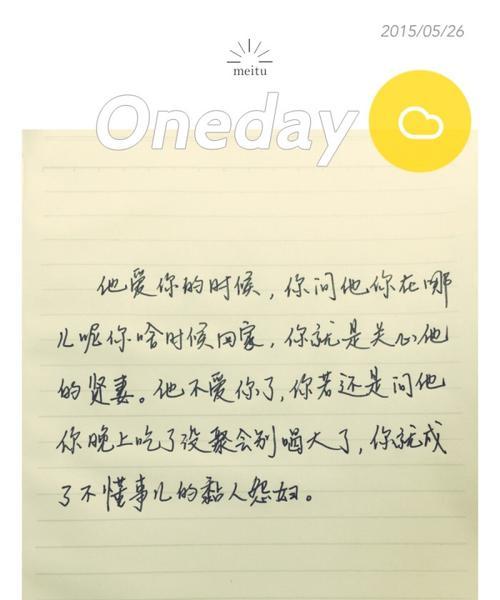 2015/05/26
meitu
Oneday
他爱你的时候，你问他你在哪
儿呢你啥时候回家，你就是关心他
的贤妻。他不爱你了，你若还是问他
你晚上吃了没聚会别喝大了，你就成
了不懂事儿的黏人怨妇。